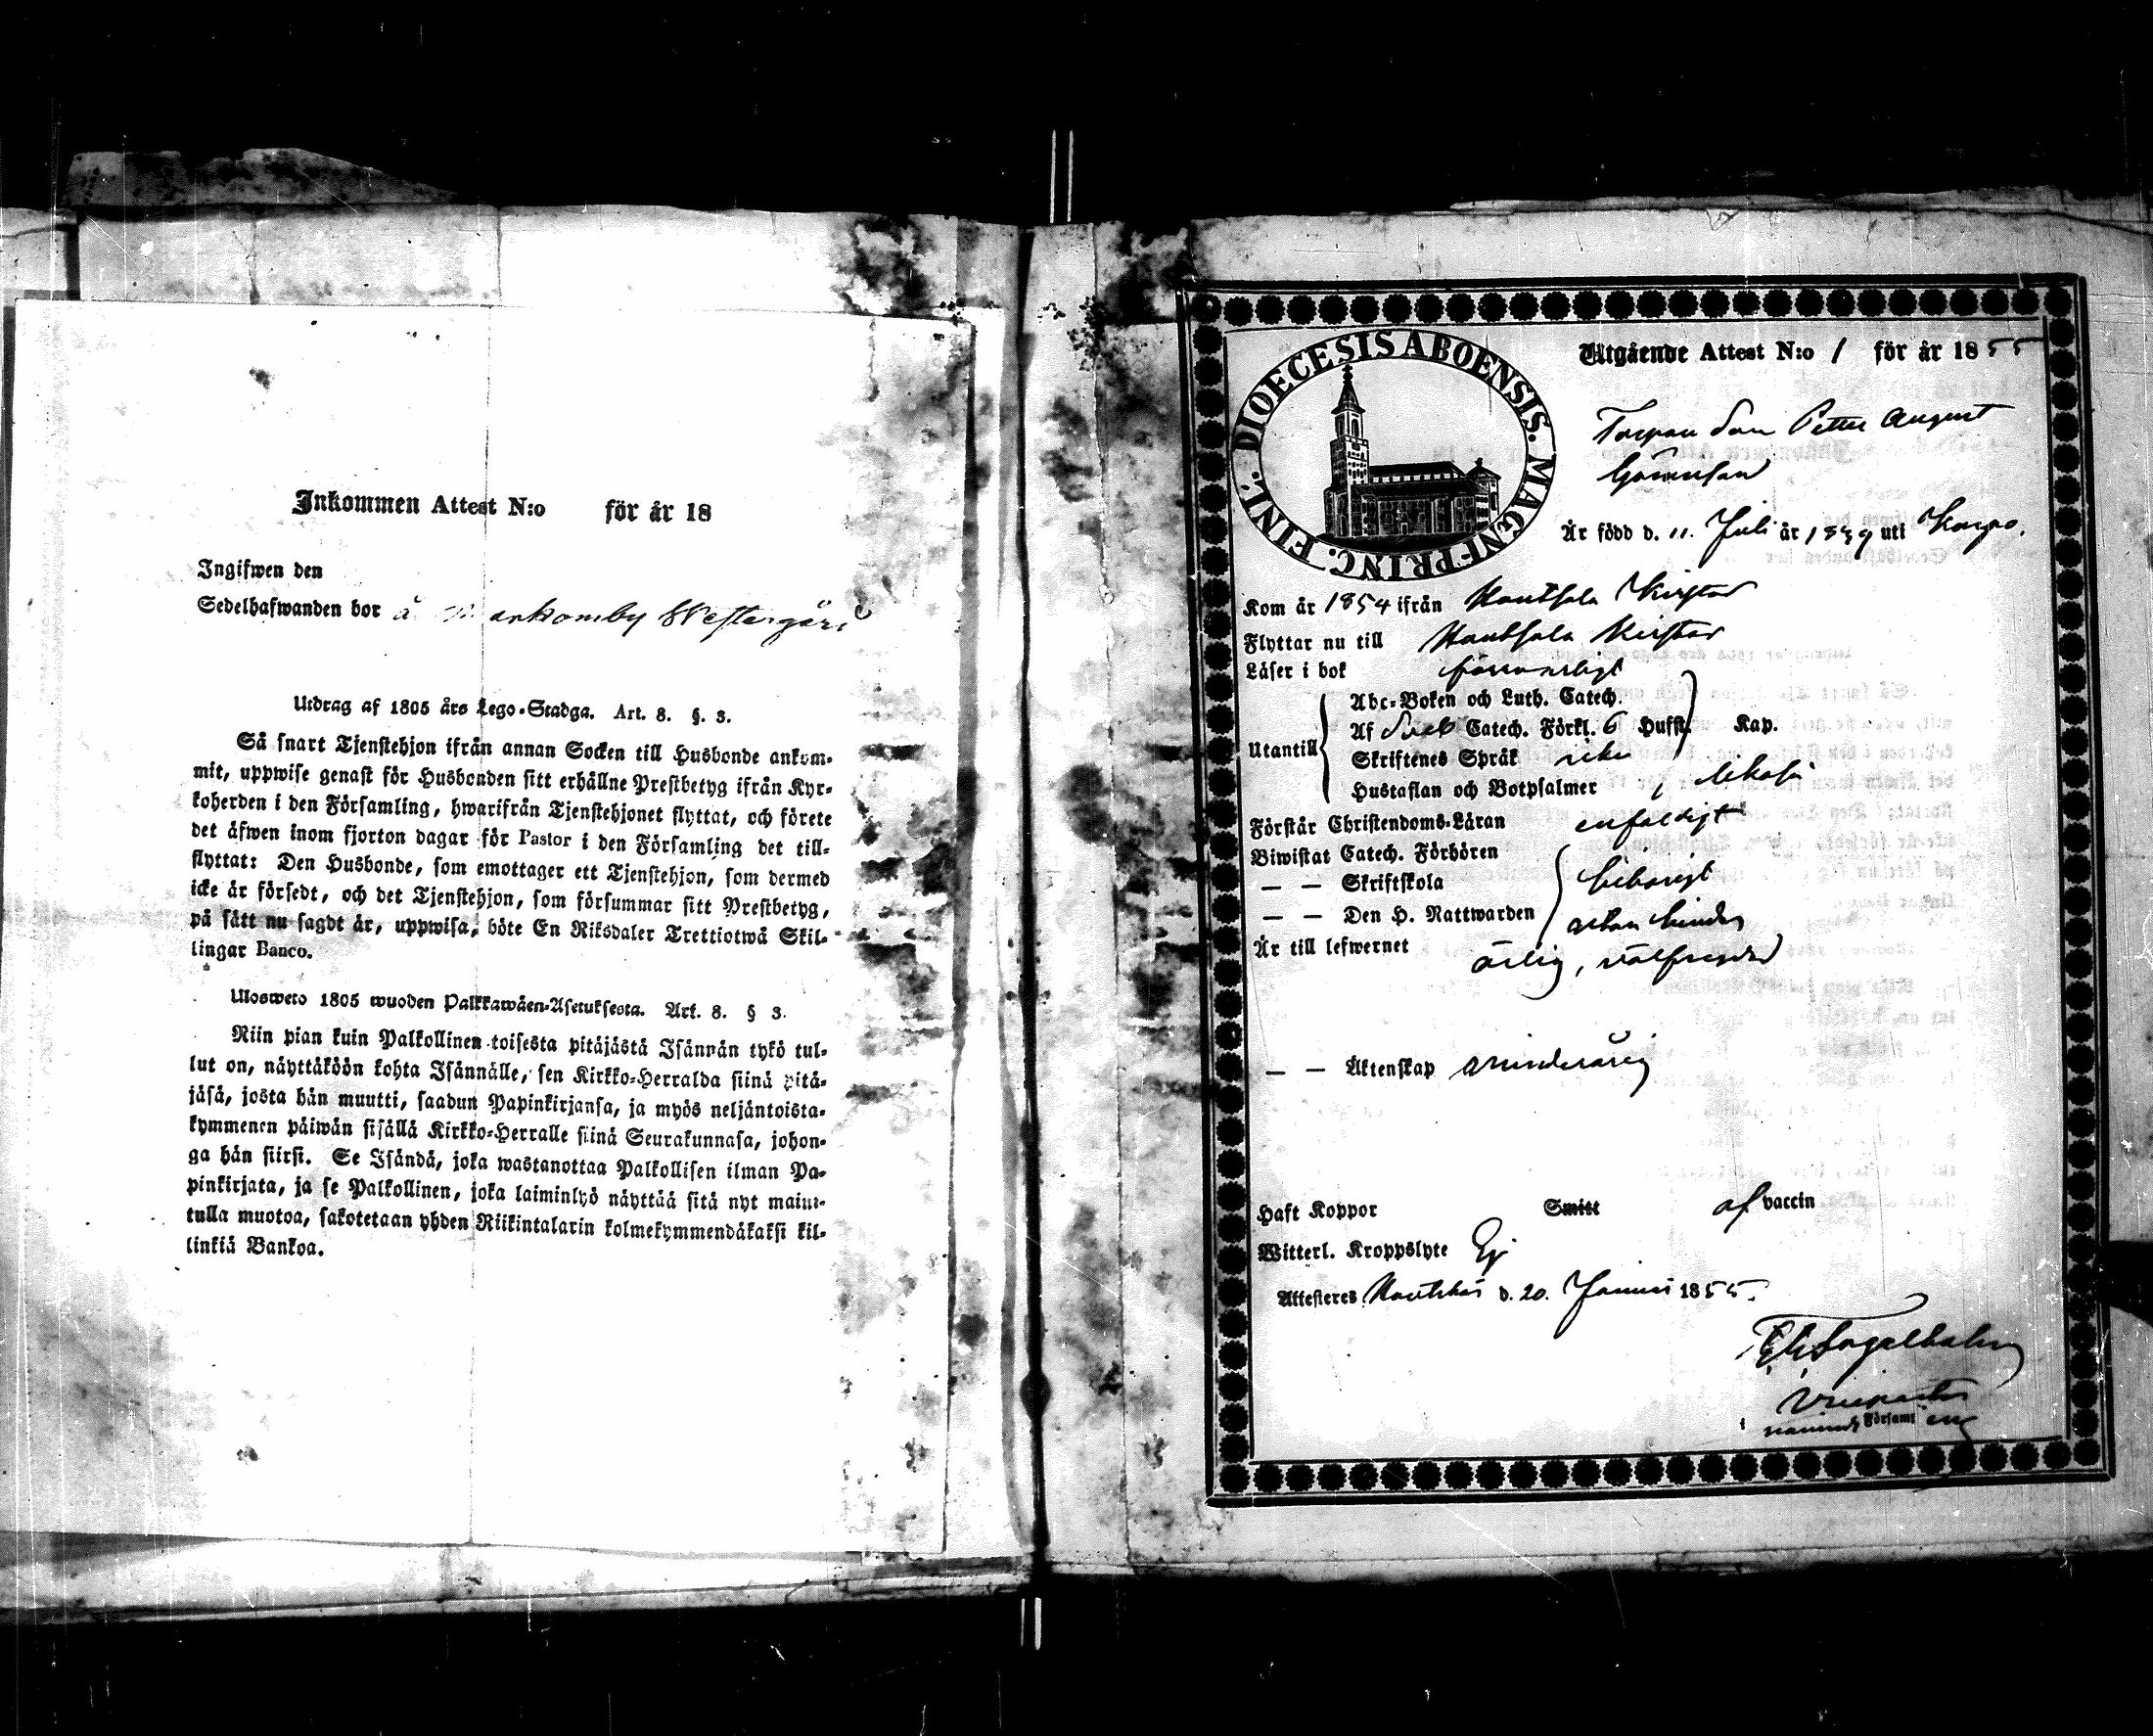 Inkommen Attest N:o för år 18
Ingifwen den
Sedelhafwanden bor å Markomby Westergård
Utdrag af 1805 års Lego-Stadga. Art. 8. §. 3.
Så snart Tjenstehjon ifrån annan Socken till Husbonde ankom-
mit, uppwise genast för Husbonden sitt erhållne Prestbetyg ifrån Kyr-
koherden i den Församling, hwarifrån Tjenstehjonet flyttat, och förete
det äfwen inom fjorton dagar för Pastor i den Församling det till-
flyttat: Den Husbonde, som emottager ett Tjenstehjon, som dermed
icke är försedt, och det Tjenstehjon, som försummar sitt Prestbetyg,
på sätt nu sagdt är, uppwisa, böte En Riksdaler Trettiotwå Skil-
lingar Banco.
Ulosweto 1805 wuoden Palkkawäen-Asetuksesta. Art. 8. § 3.
Niin pian kuin Palkollinen toisesta pitäjästä Isännän tykö tul-
lut on, näyttäköön kohta Isännälle, sen Kirkko-Herralda siinä pitä-
jäsä, josta hän muutti, saadun Papinkirjansa, ja myös neljäntoista-
kymmenen päiwän sisällä Kirkko-Herralle siinä Seurakunnasa, johon-
ga hän siirsi. Se Isändä, joka wastanottaa Palkollisen ilman Pa-
pinkirjata, ja se Palkollinen, joka laiminlyö näyttää sitä nyt mainit-
tulla muotoa, sakotetaan yhden Riikintalarin kolmekymmendäkaksi kil-
linkiä Bankoa.
DIOECESIS ABOENSIS. MAGNI PRINC. FINL.
Utgående Attest N:o 1 för år 1855
Torpare Son Petter August
Är född d. 11. Juli år 1839 uti Korpo.
Kom år 1854 ifrån Houtsala Kirstas
Flyttar nu till Houtsala Kirstas
Läser i bok försvarligt
Utantill
Abc-Boken och Luth. Catech.
Af Sveb Catech. Förkl. 6 Hufst. Kap.
Skriftenes Språk icke
Hustaflan och Botpsalmer likaså
Förstår Christendoms-Läran enfaldigt
Biwistat Catech. Förhören
— — Skriftskola behörigt
— — Den H. Nattwarden utan hinder
Är till lefwernet ärlig, välfrejdad
— — Äktenskap minderårig
Haft Koppor Smitt af vaccin
Witterl. Kroppslyte Ej
Attesteres Houtskär d. 20. Januari 1855.
Vice pastor
Församl